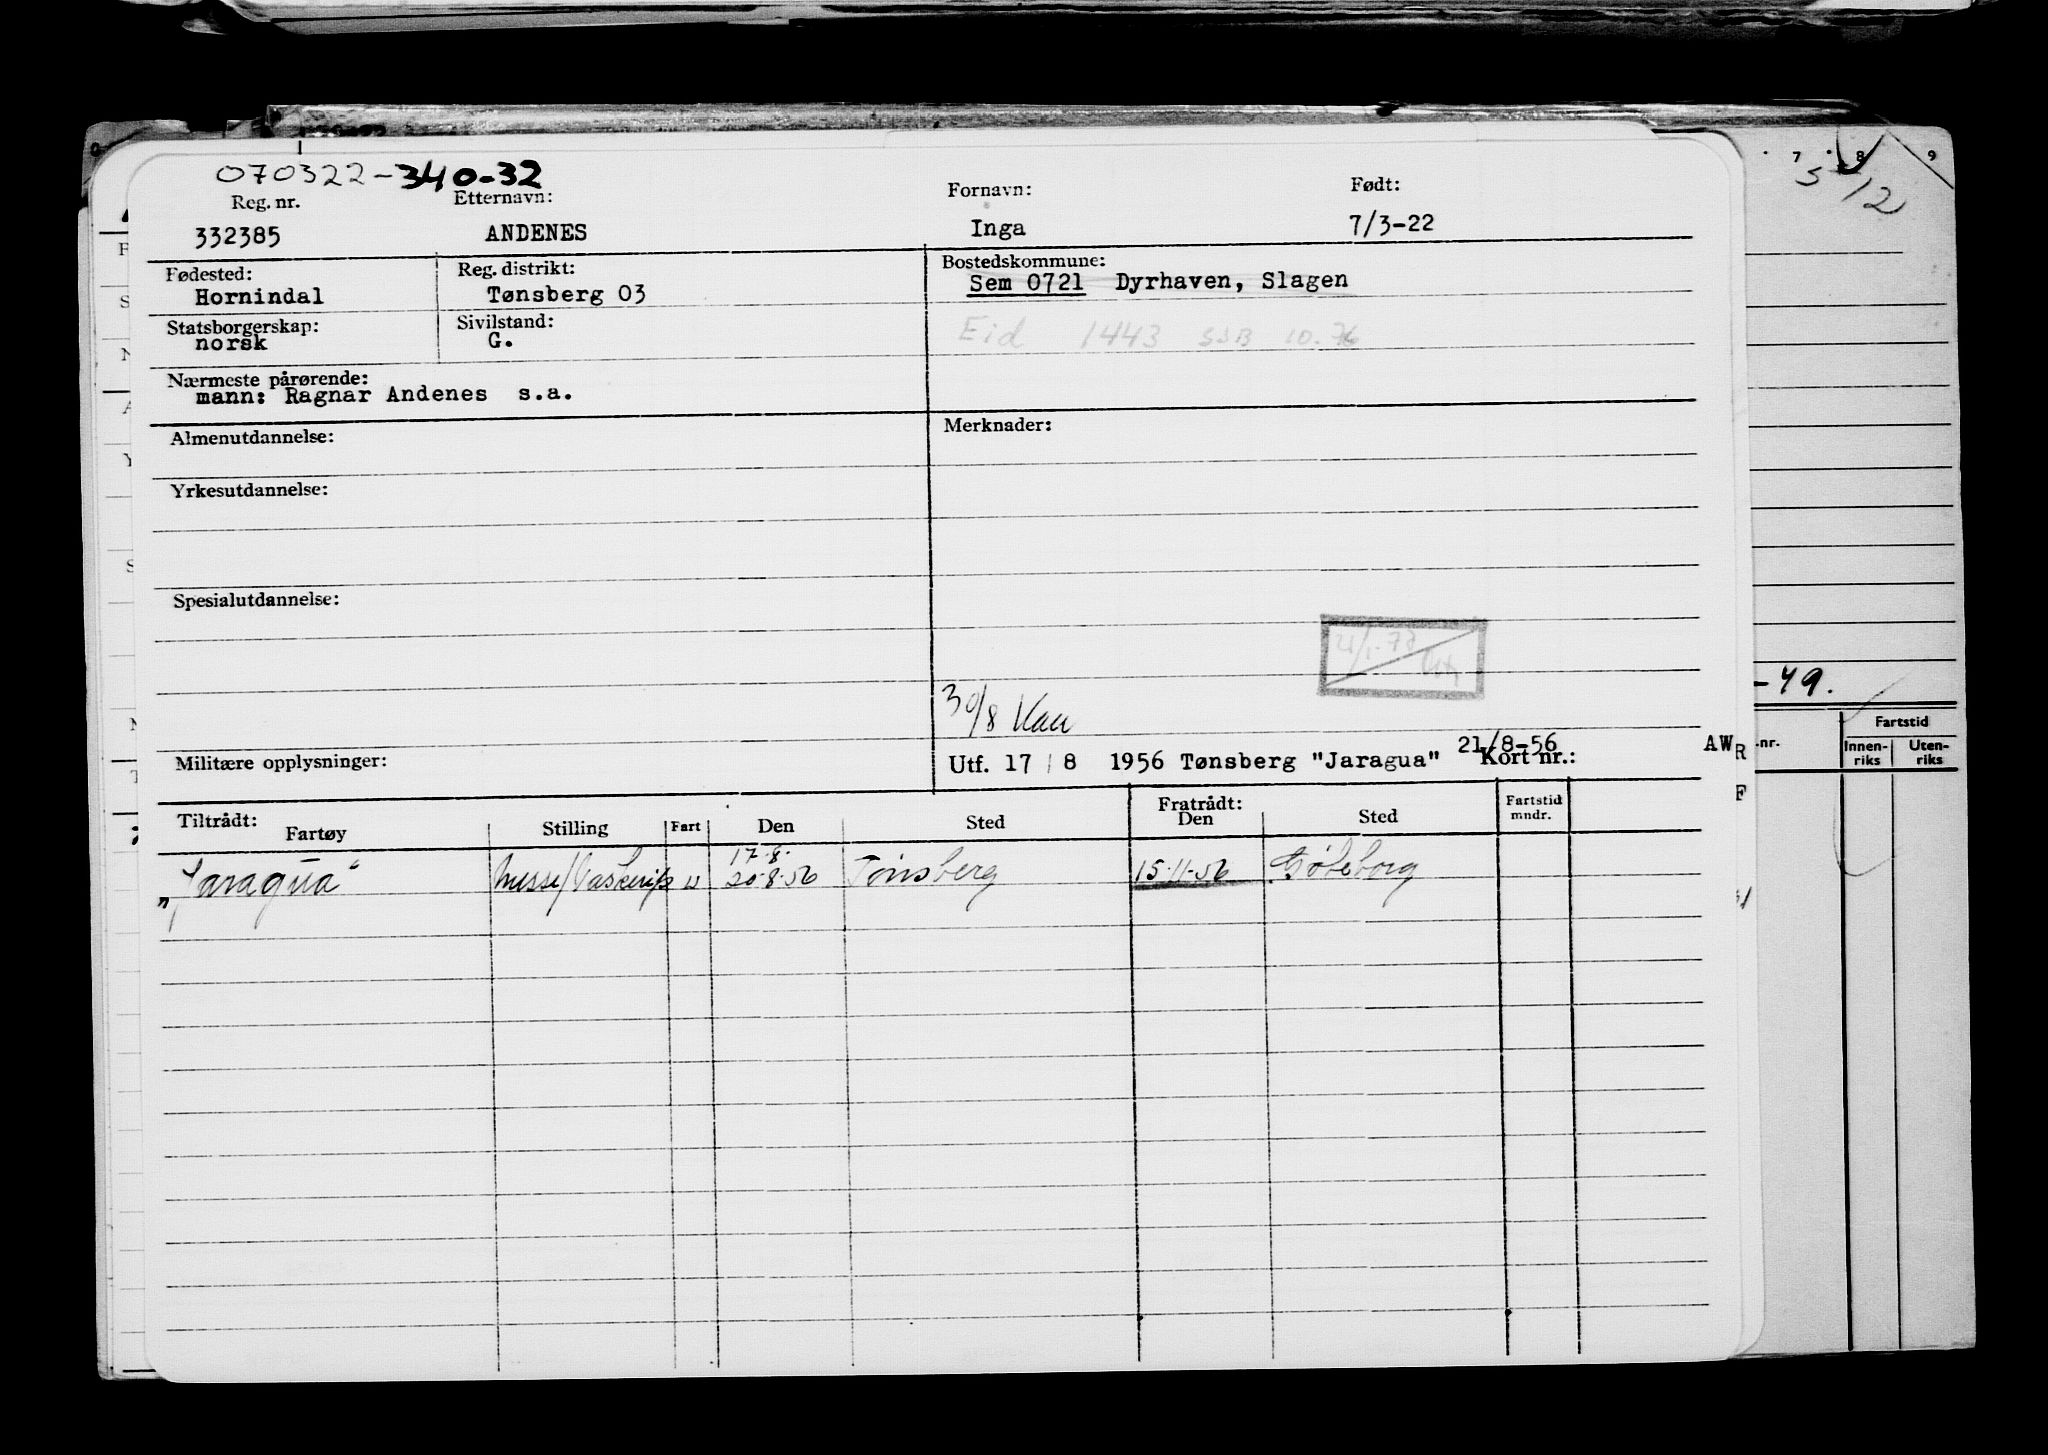 070322-340-32
Reg. nr. Etternavn: Fornavn: Født:
332385 ANDENES Inga 7/3-22
Fødested: Reg. distrikt: Bostedskommune:
Hornindal Tønsberg 03 Sem 0721 Dyrhaven, Slagen
Statsborgerskap: Sivilstand:
norsk G. Eid 1443 SSB 10.76
Nærmeste pårørende:
mann: Ragnar Andenes s.a.
Almenutdannelse: Merknader:
Yrkesutdannelse:
Spesialutdannelse:
30/8
Militære opplysninger: Utf. 17/8 1956 Tønsberg "Jaragua" 21/8-56 Kort nr.: AW
Tiltrådt: Fratrådt:
Fartøy Stilling Fart Den Sted Den Sted Fartstid mndr.
17.8.
"Jaragua" 20.8.56 Tønsberg 15.11.56 Gøteborg
7 8 9
5 12
-49.
-nr. Fartstid
Innen-riks Uten-riks